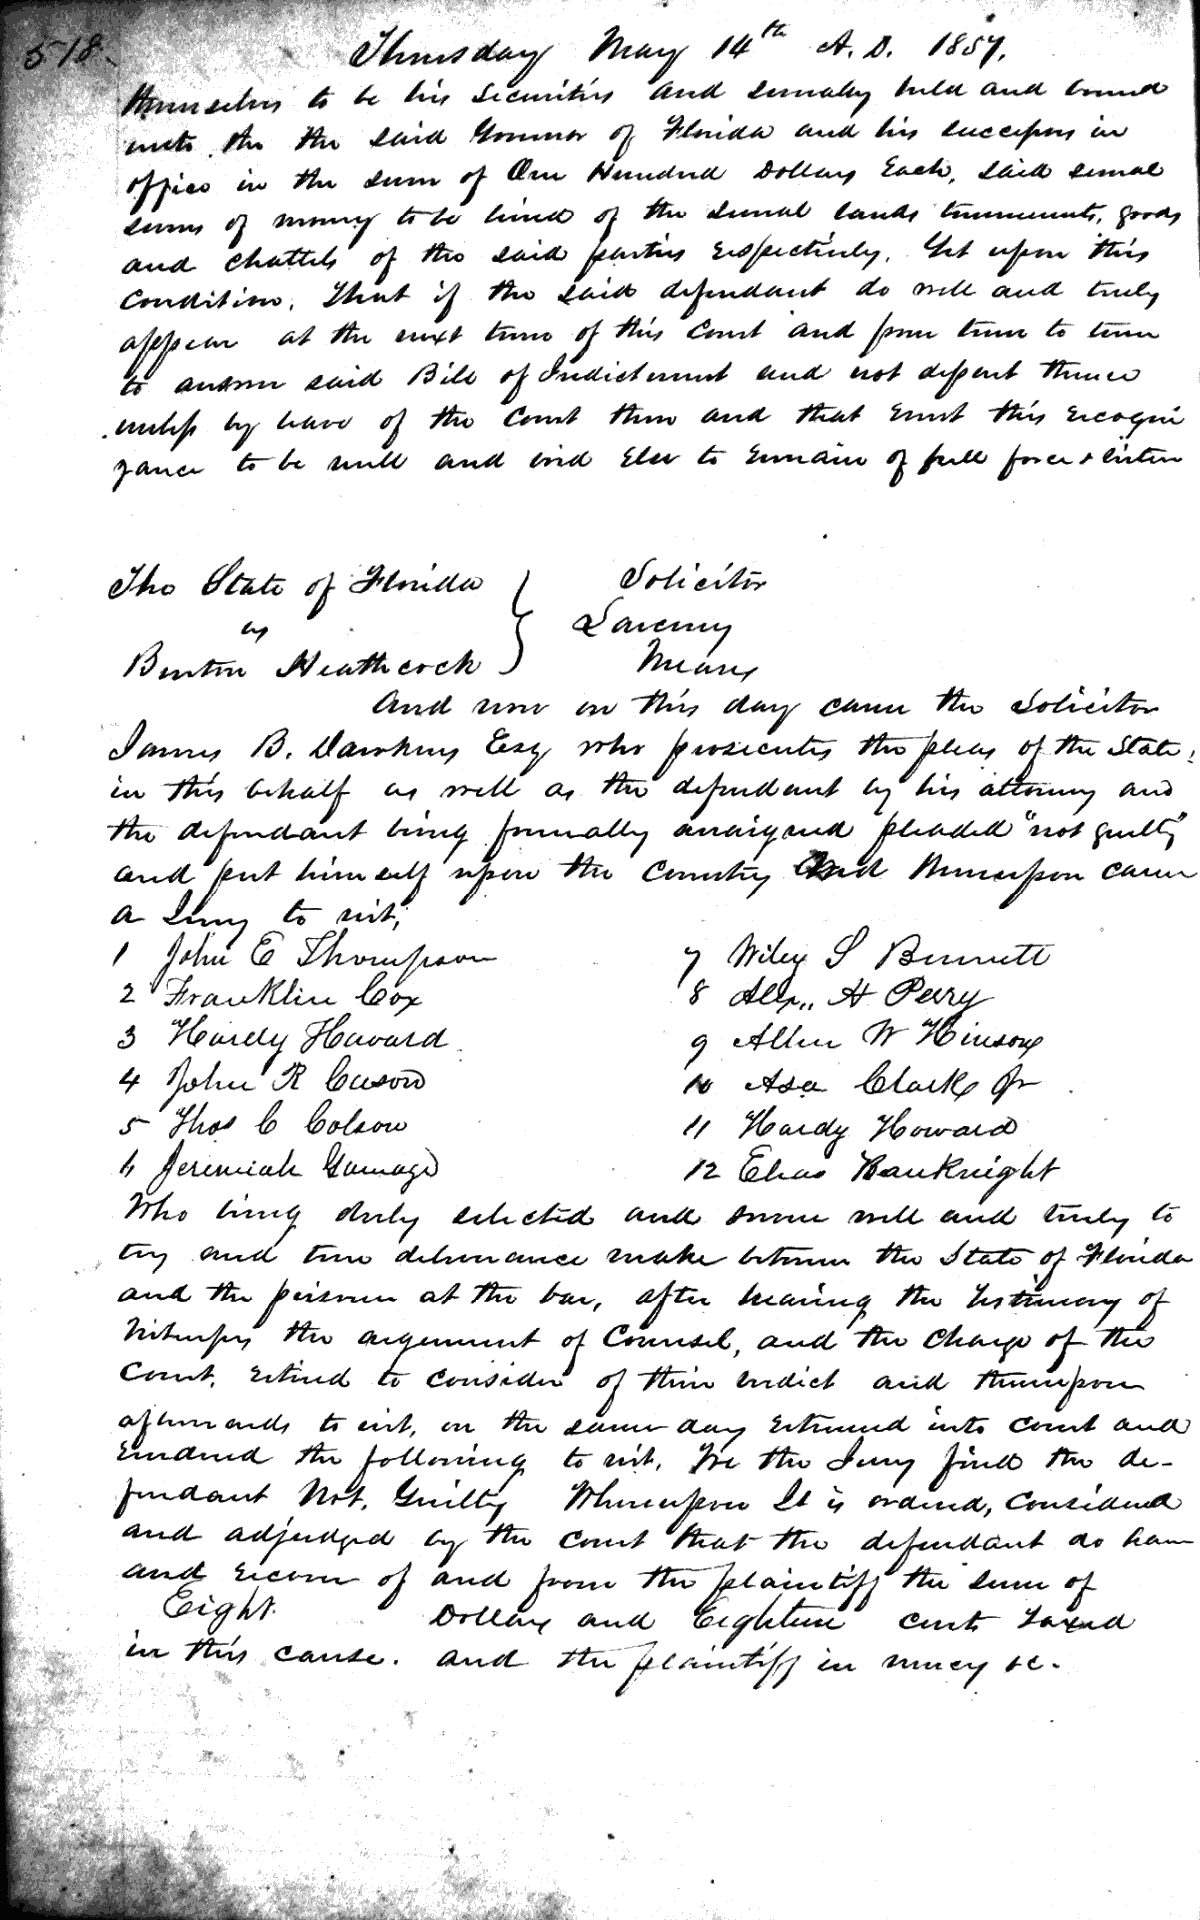 518.
Thursday May 14th A. D. 1857.
themselves to be his Securities and severally held and bound
unto the the said Governor of Florida and his successors in
office in the sum of One Hundred Dollars Each, said several
sums of money to be levied of the several lands tenements, goods
and chattels of the said parties respectively. Yet upon this
Condition. That if the said defendant do well and truly
appear at the next term of this Court and from term to term
to answer said Bill of Indictment and not depart thence
unless by leave of the Court then and in that event this recogni
zance to be null and void Else to remain of full force & virtue
The State of Florida
vs
Benton Heathcock
Solicitor
Larceny
Means
And now on this day came the Solicitor
James B. Dawkins Esq who prosecutes the pleas of the State
in this behalf as well as the defendant by his attorney and
the defendant being formally arraigned pleaded "not guilty"
and put himself upon the Country And Whereupon came
a Jury to wit;
1 John E Thompson
2 Franklin Cox
3 Hardy Havard
4 John R Cason
5 Thos C Colson
6 Jeremiah Gamage
7 Wiley S Bennett
8 Alx,, H Perry
9 Allen W Hinson
10 Asa Clark Jr
11 Hardy Howard
12 Elias BauKnight
Who being duly selected and sworn well and truly to
try and true deliverance make between the State of Florida
and the prisoner at the bar, after hearing the testimony of
Witnesses the argument of Counsel, and the Charge of the
Court, retired to consider of their verdict and thereupon
afterwards to wit, on the same day returned into court and
rendered the following to wit, We the Jury find the de-
fendant Not. Guilty Whereupon It is ordered, Considered
and adjudged by the Court that the defendant do have
and recover of and from the plaintiff the sum of
Eight. Dollars and Eighteen cents taxed
in this cause. and the plaintiff in mercy &c.